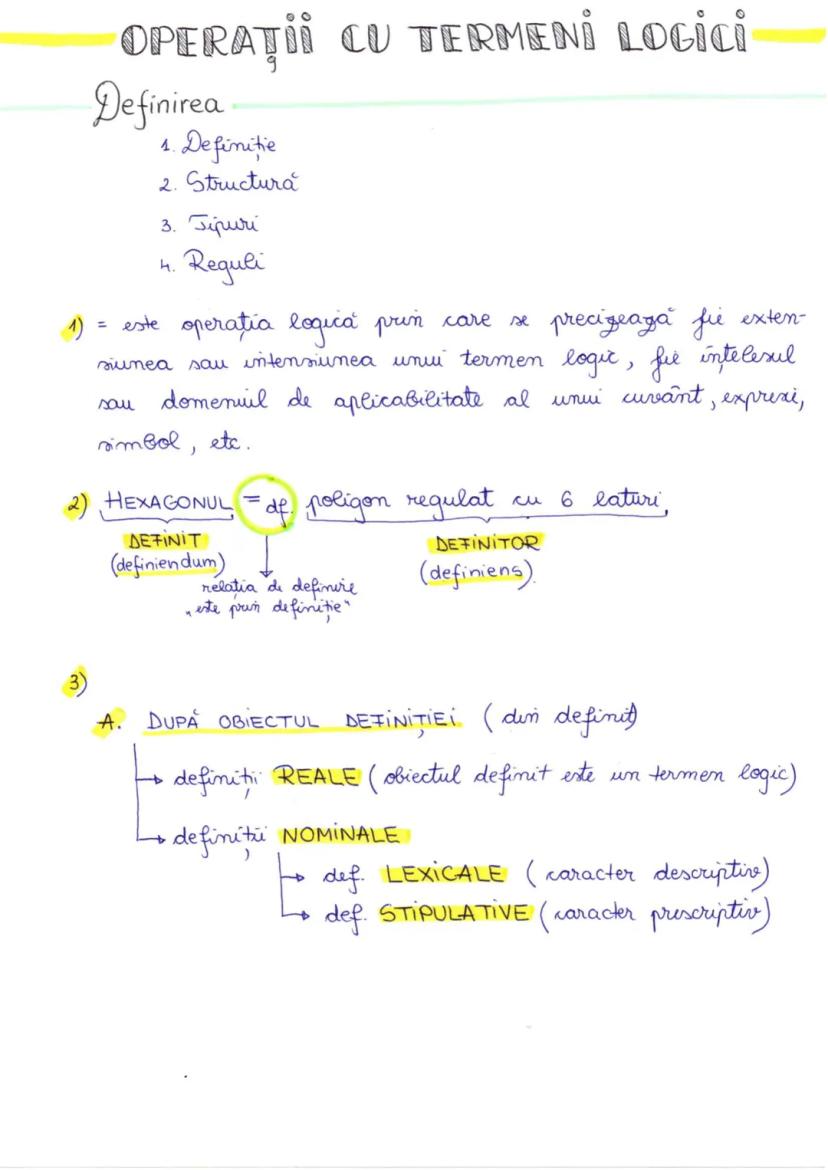 OPERAȚII CU TERMENI LOGICI
Definirea
1. Definiție
2. Structură
3. Tipuri
4. Reguli
1) = este operația logică prin care se precizează fie exten-
siunea sau intensiunea unui termen logic, fie înțelesul
sau domeniul de aplicabilitate al unui cuvânt, expresi,
simbol, etc.
2) HEXAGONUL = df. poligon regulat cu 6 laturi,
DEFINIT DEFINITOR
(definiendum) (definiens).
relația de definire
"este prin definiție"
3)
A. DUPĂ OBIECTUL DEFINIȚIEI (din definit)
→ definiții REALE (obiectul definit este un termen logic)
→ definiții NOMINALE
→ def. LEXICALE (caracter descriptiv)
→ def. STIPULATIVE (caracter prescriptiv)